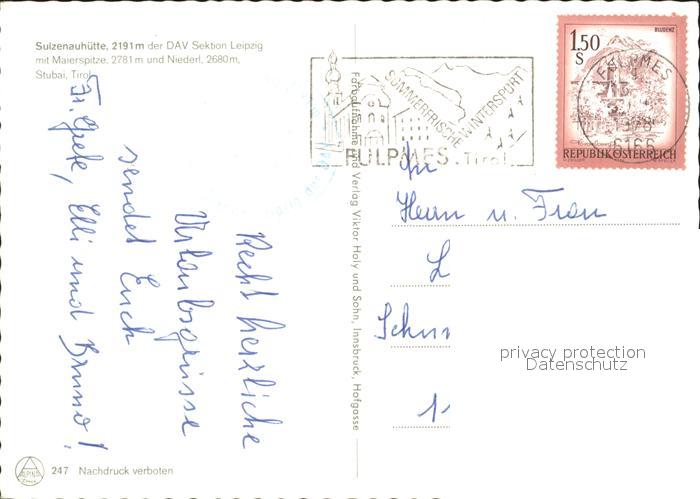 Sulzenauhütte, 2191 m der DAV Sektion Leipzig
mit Maierspitze, 2781 m und Niederl, 2680 m,
Stubai, Tirol
Recht herzliche
Urlaubsgrüsse
sendet Euch
Elli und Bruno!
247 Nachdruck verboten
ALPINE
Farbaufnahme und Verlag Viktor Holy und Sohn, Innsbruck, Hofgasse
SOMMERFRISCHE WINTERSPORT
FULPMES . Tirol
1.50
S
BLUDENZ
REPUBLIK ÖSTERREICH
FULPMES
6166
An
Herrn u. Frau
L
Schu
1
privacy protection
Datenschutz